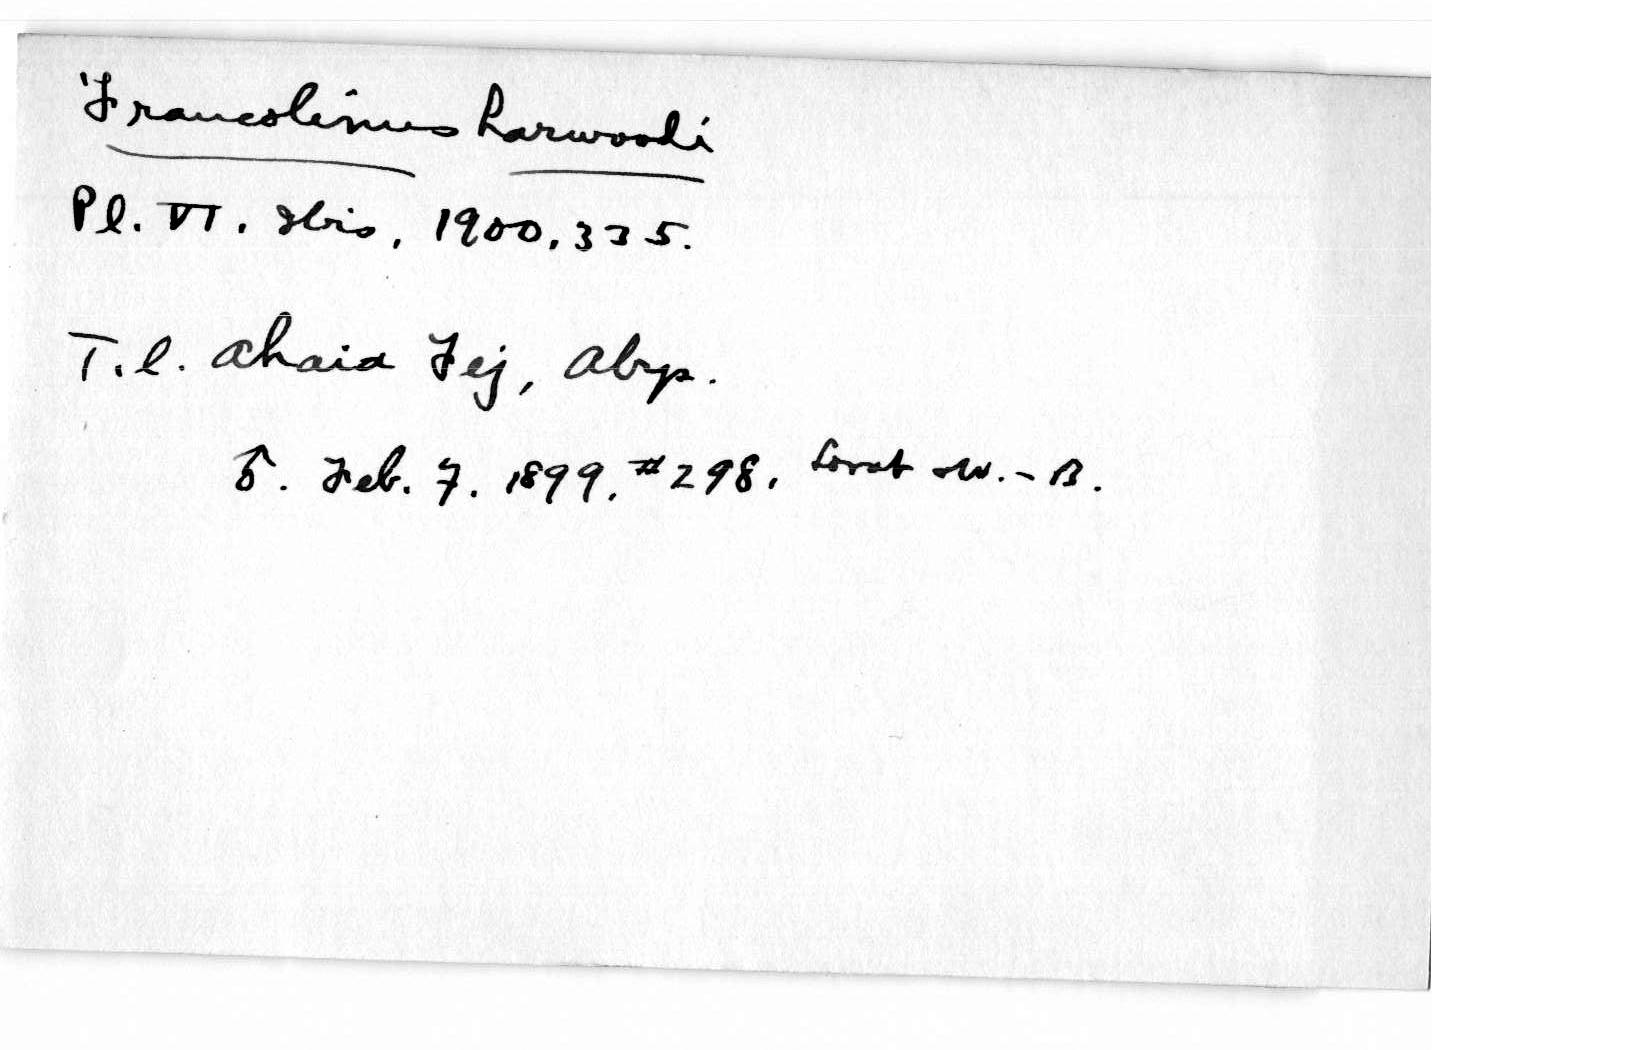 Francolinus harwoodi
Pl. VI. Ibis, 1900, 335.
T.l. Ahaia Fej, Abys.
♂. Feb. 7. 1899. #298, Lovat &W.-B.